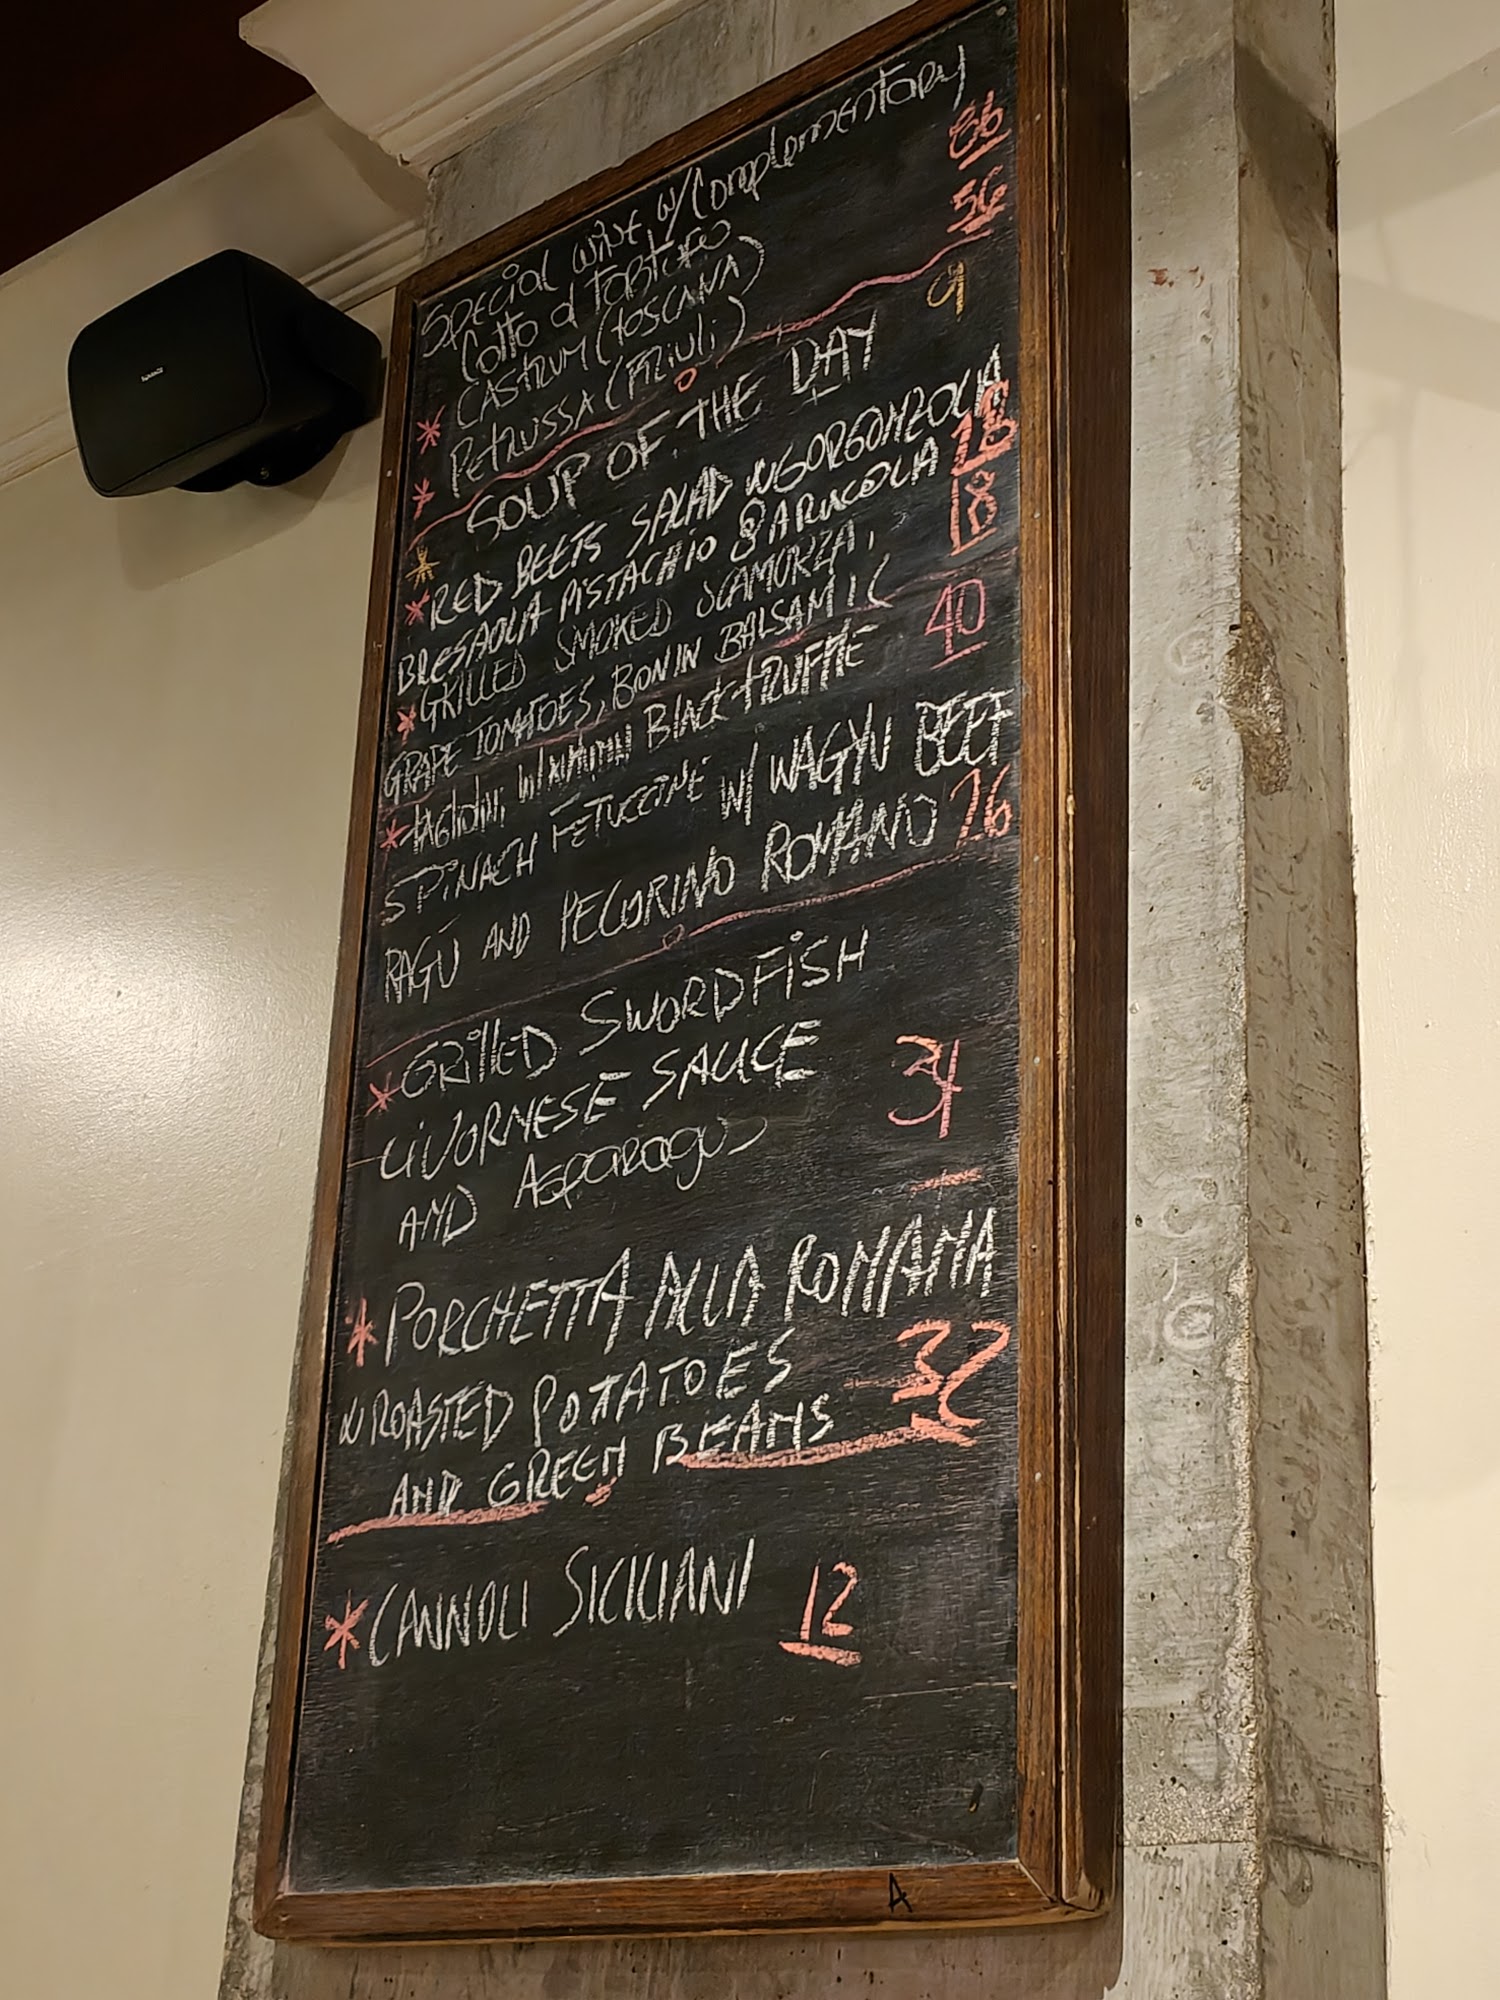 Special wine w/Complementary
Cotto al Tartufo
* CASTRUM (TOSCANA) 86
* PETRUSSA (FRIULI) 56
* SOUP OF THE DAY 9
* RED BEETS SALAD W GORGONZOLA
BRESAOLA PISTACHIO & ARUCOLA 18
* GRILLED SMOKED SCAMORZA,
GRAPE TOMATOES, BONIN BALSAMIC 18
* TAGLIOLINI BLACK TRUFFLE 40
SPINACH FETUCCINE W/ WAGYU BEEF
RAGÚ AND PECORINO ROMANO 26
* GRILLED SWORDFISH
LIVORNESE SAUCE
AND ASPARAGUS 34
* PORCHETTA ALLA ROMANA
W ROASTED POTATOES
AND GREEN BEANS 32
* CANNOLI SICILIANI 12
A